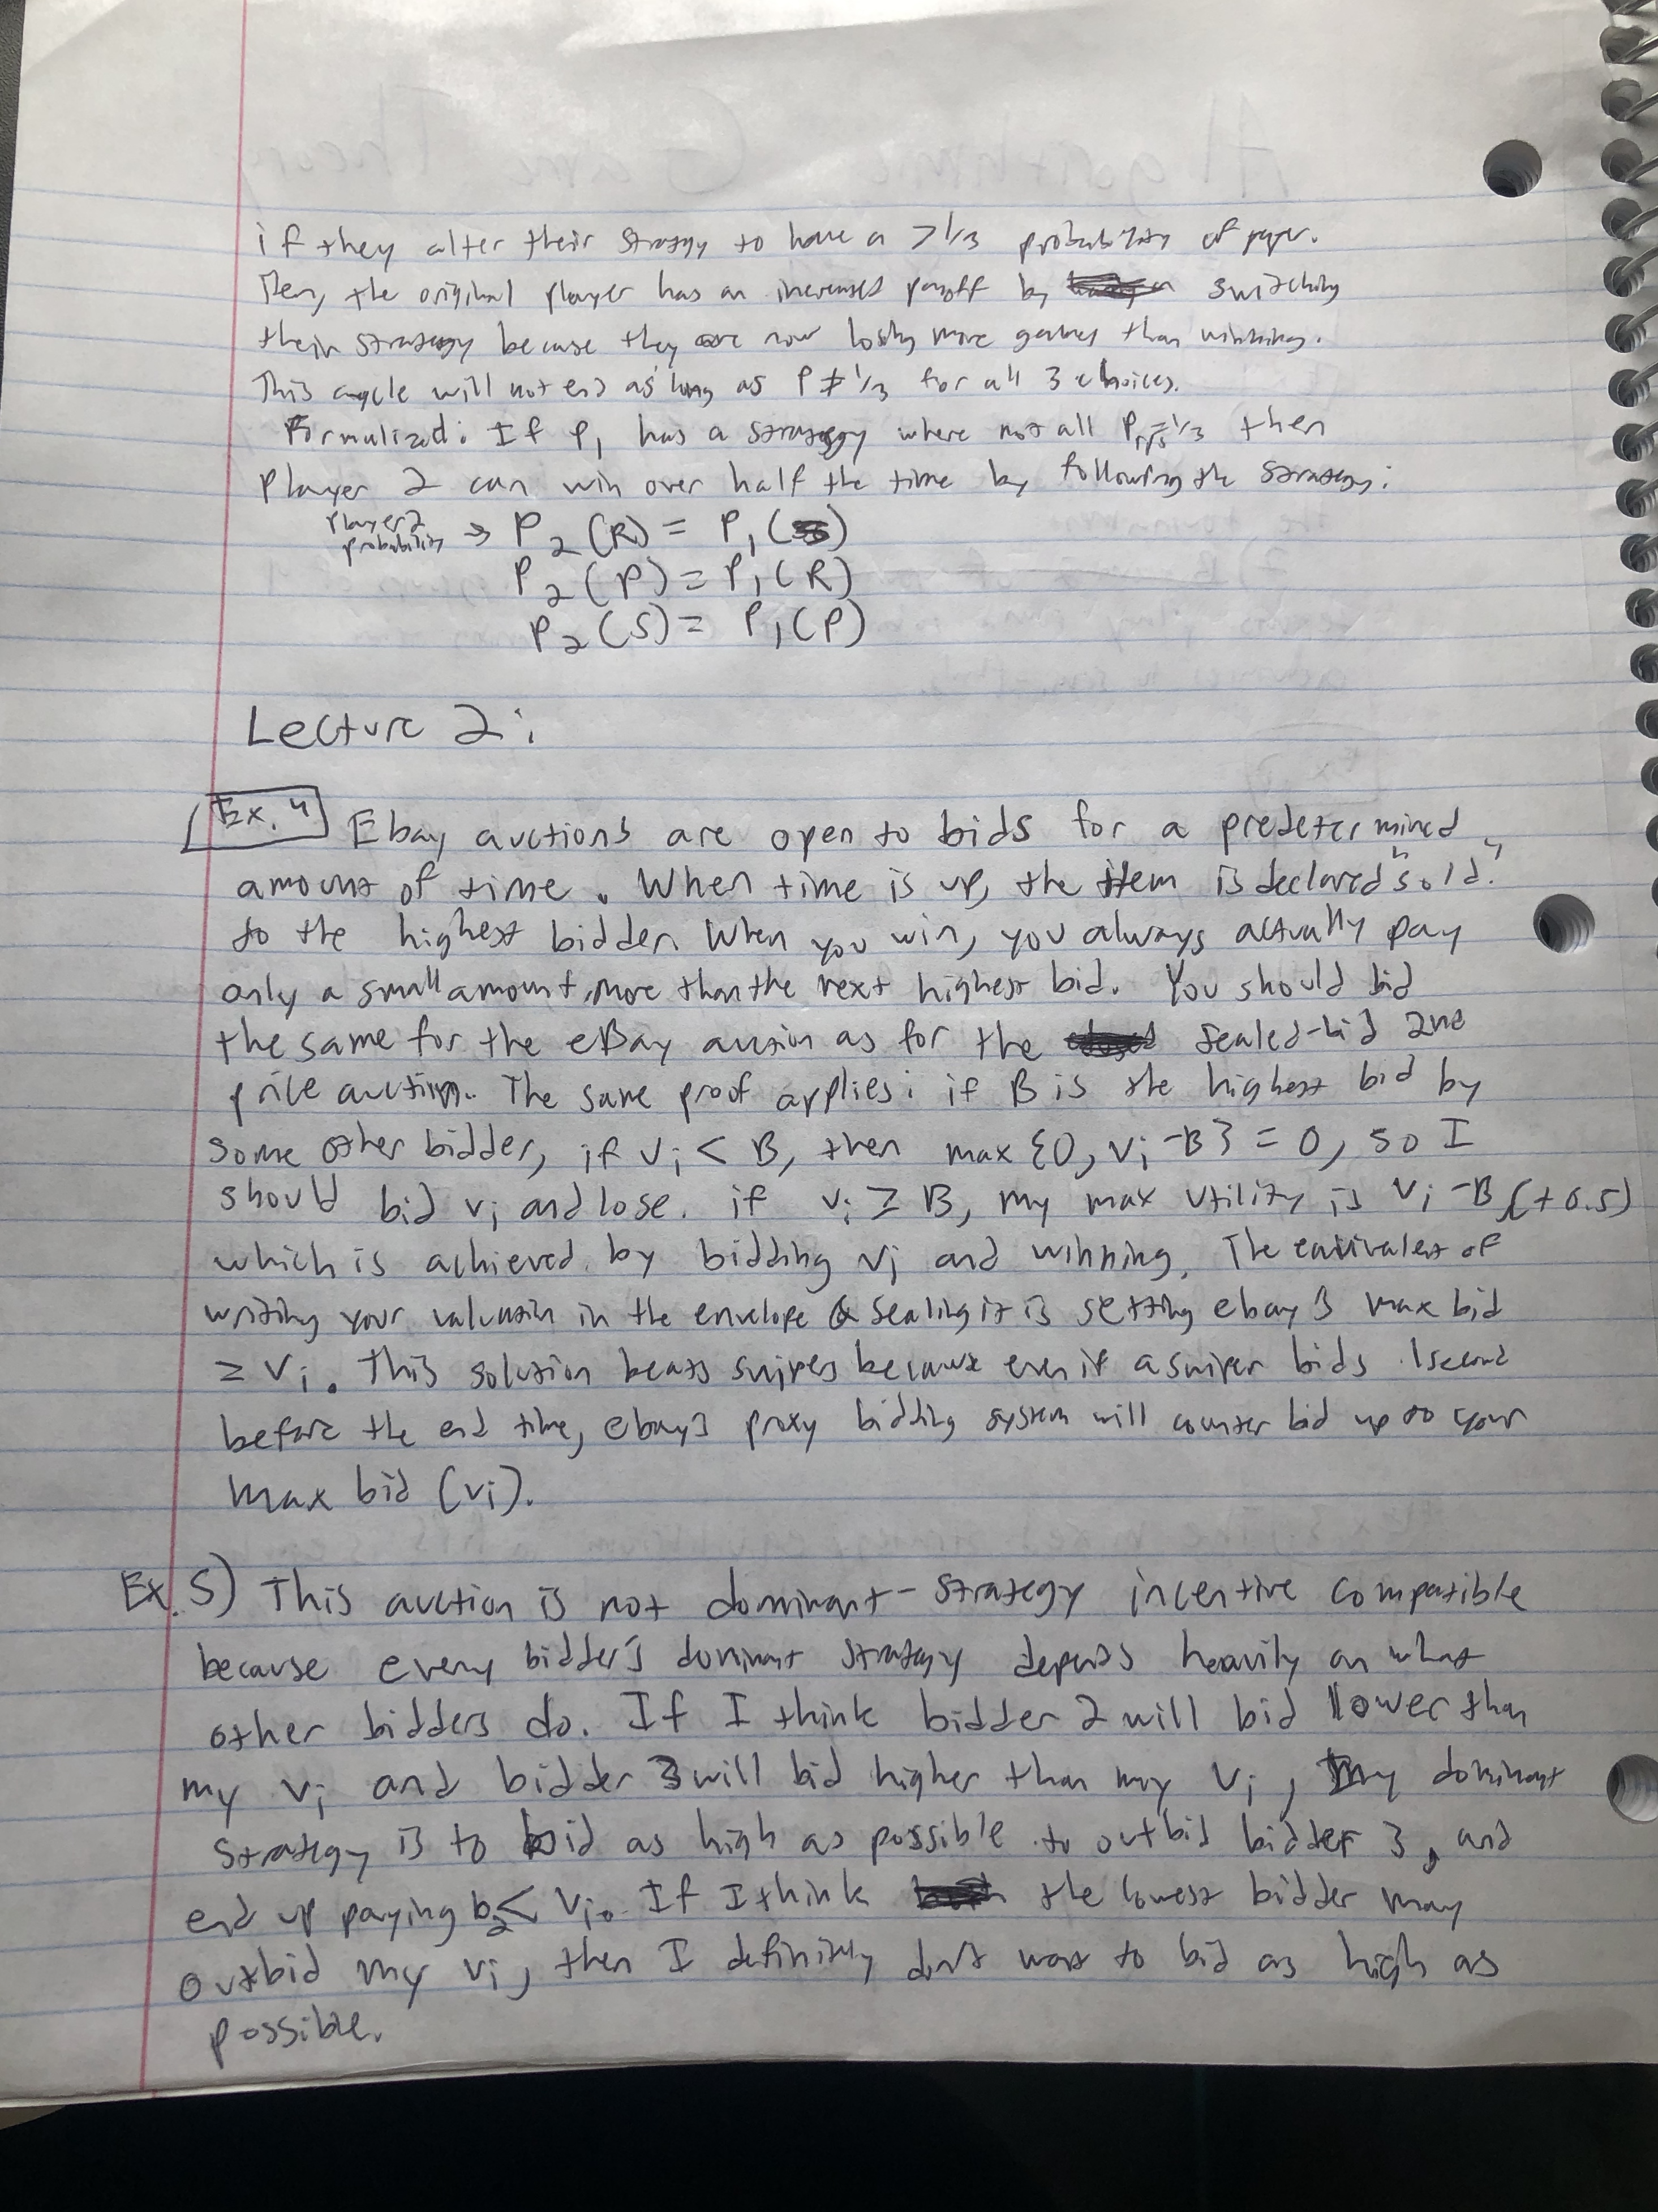 if they alter their strategy to have a >1/3 probability of paper.
Then, the original player has an increased payoff by switching
their strategy because they are now losing more games than winning.
This cycle will not end as long as P ≠ 1/3 for all 3 choices.
Formalized: If P₁ has a strategy where not all P = 1/3 then
player 2 can win over half the time by following the strategy:
player 2
probability → P₂(R) = P₁(S)
P₂(P) = P₁(R)
P₂(S) = P₁(P)
Lecture 2:
Ex. 4 Ebay auctions are open to bids for a predetermined
amount of time. When time is up, the item is declared "sold."
to the highest bidder. When you win, you always actually pay
only a small amount more than the next highest bid. You should bid
the same for the eBay auction as for the sealed-bid 2nd
price auction. The same proof applies: if B is the highest bid by
some other bidder, if vᵢ < B, then max {0, vᵢ - B} = 0, so I
should bid vᵢ and lose. if vᵢ ≥ B, my max utility is vᵢ - B (+0.5)
which is achieved by bidding vᵢ and winning. The equivalent of
writing your valuation in the envelope & sealing it is setting ebay's max bid
= vᵢ. This solution beats snipers because even if a sniper bids .1 second
before the end time, ebay's proxy bidding system will counter bid up to your
max bid (vᵢ).
Ex. 5) This auction is not dominant-strategy incentive compatible
because every bidder's dominant strategy depends heavily on what
other bidders do. If I think bidder 2 will bid lower than
my vᵢ and bidder 3 will bid higher than my vᵢ, my dominant
strategy is to bid as high as possible to outbid bidder 3, and
end up paying b₂ < vᵢ. If I think the lowest bidder may
outbid my vᵢ, then I definitely don't want to bid as high as
possible.